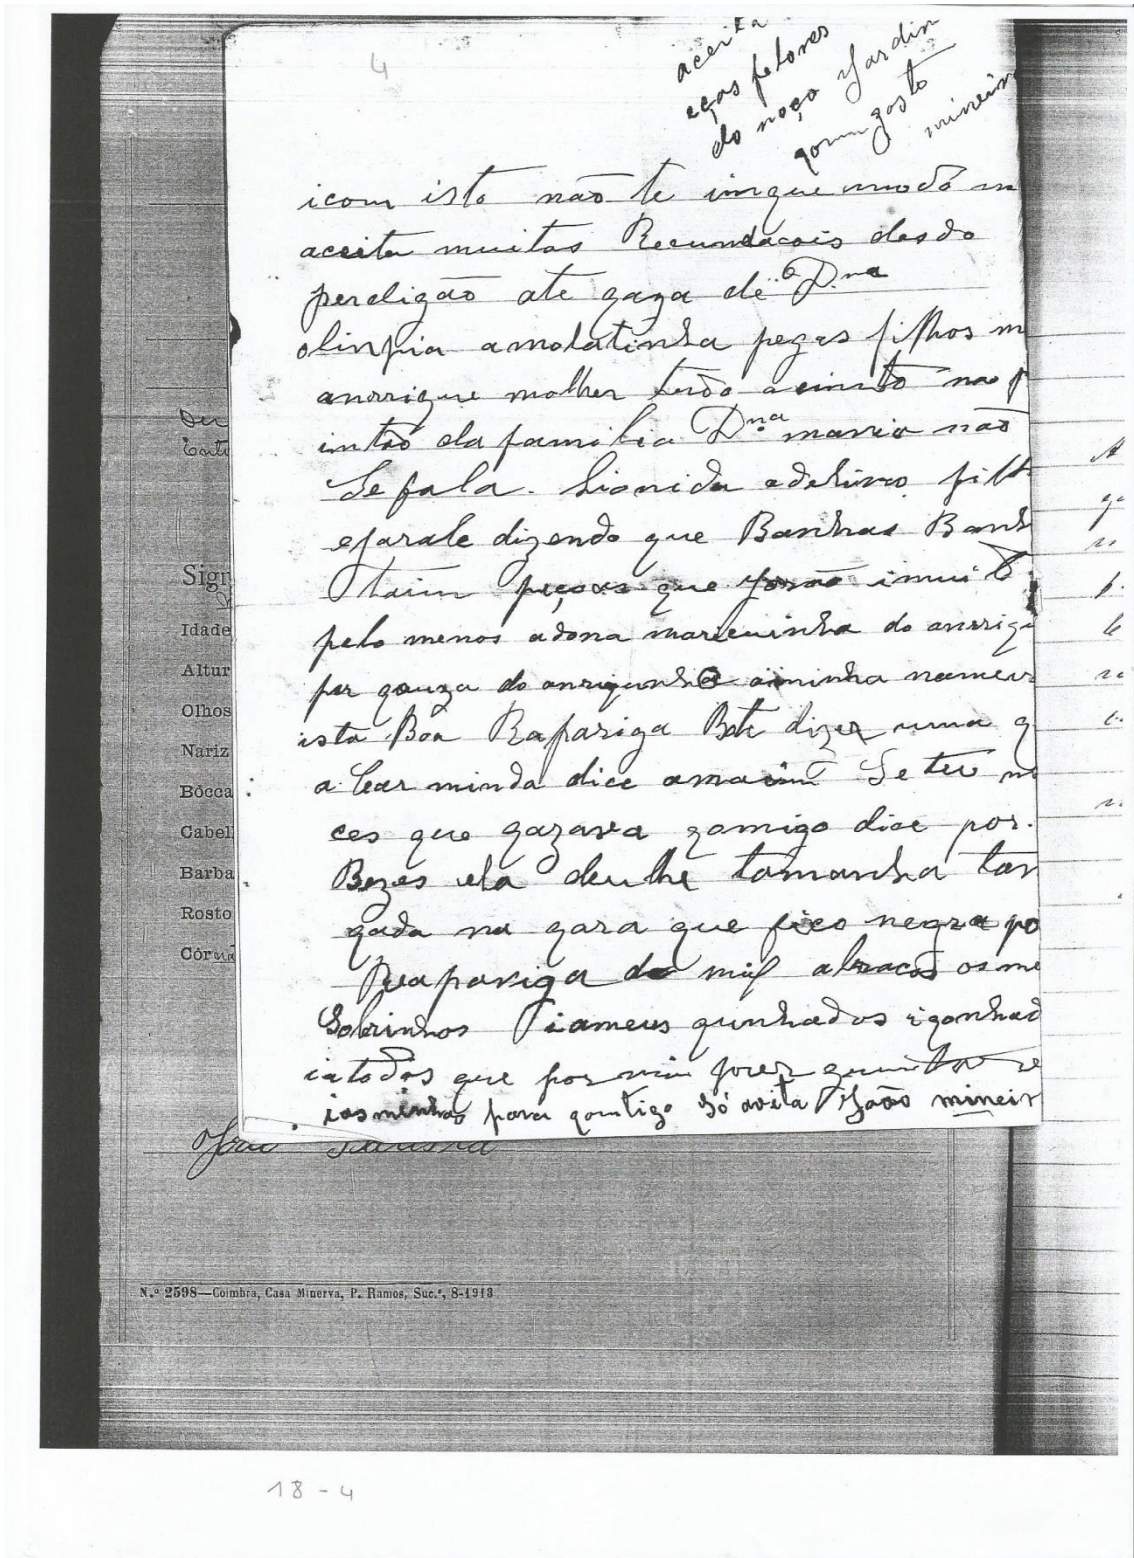 4
aceita
eças felores
do noço Jardin
gom gosto
mineir
icom isto não te inquemodo m
aceita muitas Recumdacois desdo
perdigão ate gaza de a Dna
olinpia amolatinha peças filhos m
anrrique molher tudo acimto nao p
intão da familia Dna maria não
Se fala. Lionida filh
dizendo que Banhas Banh
Taim peçoas que imuito
pelo menos adona mariquinha do anrriqu
por gauza do anriqunho aminha namur
ista Boa Rapariga Bote dizer uma q
a Lar minda dice amaim Se teu m
ces que gazava gomigo dice por.
Bezes ela deulhe tamanha tan
gada na gara que fico negra po
Reapariga mil abracos osme
Sobrinhos iameus qunhados igonhad
iatodos que por mim
iasminhas para gomtigo Só avista João mineir
Der
Sign
Idade
Altur
Olhos
Nariz
Bôcca
Cabell
Barba
Rosto
Côr
N.º 2598—Coimbra, Casa Minerva, P. Ramos, Suc.r, 8-1913
18-4